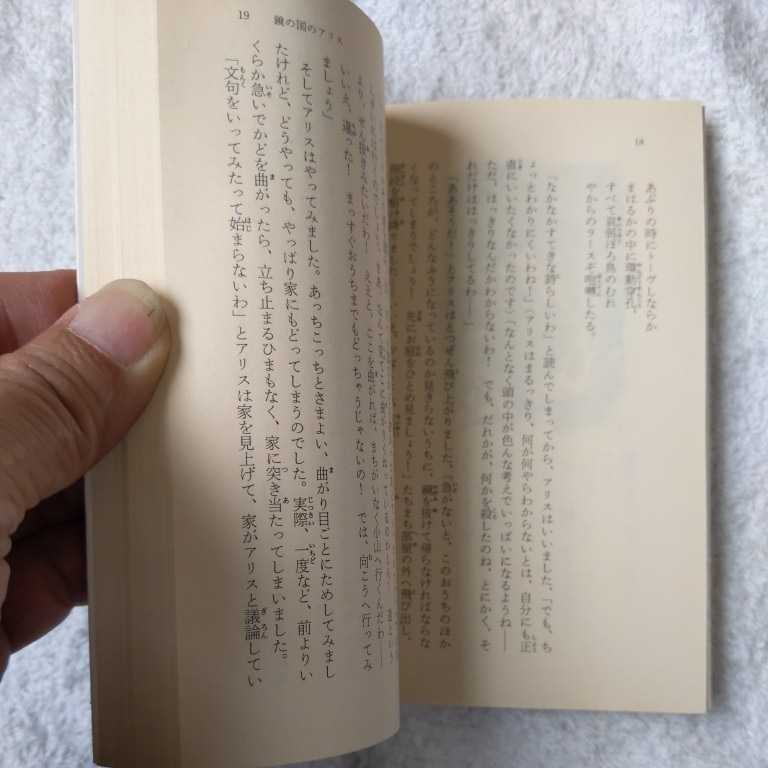 18
あぶりの時にトーヴしならか
まはるかの中に環動穿孔、
すべて哀弱ぼろ鳥のむれ
やからのラースぞ咆囈したる。
「なかなかすてきな詩らしいわ」と読んでしまってから、アリスはいいました、「でも、ち
ょっとわかりにくいわね！」（アリスはまるっきり、何が何やらわからないとは、自分にも正
直にいいたくなかったのです）「なんとなく頭の中が色んな考えでいっぱいになるようね――
ただ、はっきりなんだかわからないわ！　でも、だれかが、何かを殺したのね、とにかく、そ
れだけははっきりしてるわ――」
「ああそうだ！」とアリスはとつぜん飛び上がりました、「急がないと、このおうちのほか
のところが、どんなふうになっているのか見きらないうちに、鏡を抜けて帰らなければならな
くなってしまうでしょう！　先にお庭をひとめ見ましょう！」たちまち部屋の外へ飛び出し、
19　鏡の国のアリス
より、せん抜きみたいだわ！　ええと、ここを曲がれば、まちがいなく小山へ行くんだわ――
いいえ、違った！　まっすぐおうちまでもどっちゃうじゃないの！　では、向こうへ行ってみ
ましょう」
そしてアリスはやってみました。あっちこっちとさまよい、曲がり目ごとにためしてみまし
たけれど、どうやっても、やっぱり家にもどってしまうのでした。実際、一度など、前よりい
くらか急いでかどを曲がったら、立ち止まるひまもなく、家に突き当たってしまいました。
「文句をいってみたって始まらないわ」とアリスは家を見上げて、家がアリスと議論してい